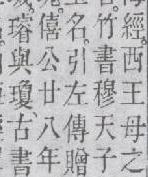 經。西王母之
竹書穆天子
名。引左傳贈
僖公廿八年
璿與瓊。古書